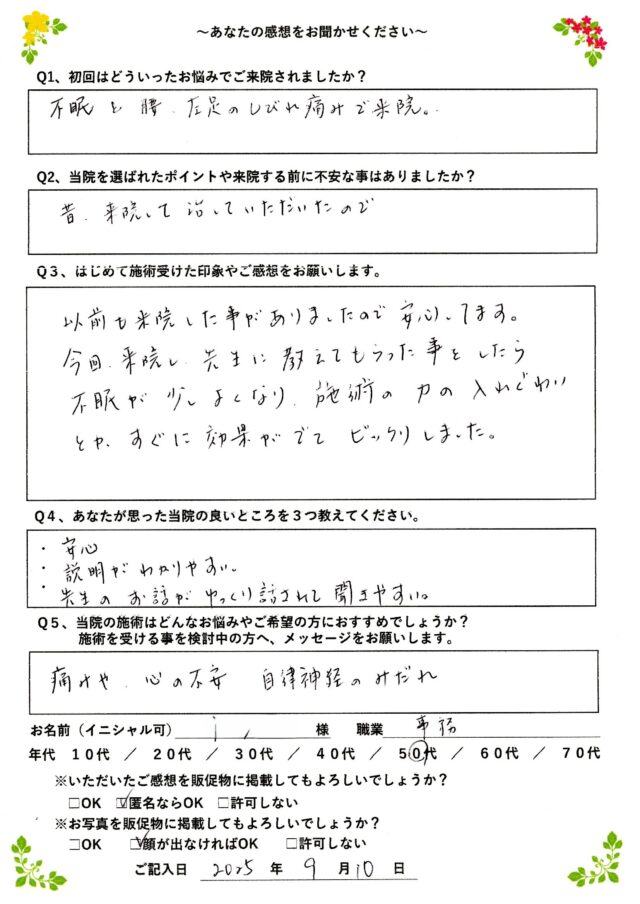 ～あなたの感想をお聞かせください～
Q1、初回はどういったお悩みでご来院されましたか？
不眠と腰、左足のしびれ痛みで来院。
Q2、当院を選ばれたポイントや来院する前に不安な事はありましたか？
昔、来院して治していただいたので
Q３、はじめて施術受けた印象やご感想をお願いします。
以前も来院した事がありましたので安心してます。
今回、来院し、先生に教えてもらった事をしたら
不眠が少しよくなり、施術の力の入れぐあい
とか、すぐに効果がでてビックリしました。
Q４、あなたが思った当院の良いところを３つ教えてください。
・安心
・説明がわかりやすい。
・先生のお話がゆっくり話されて聞きやすい。
Q５、当院の施術はどんなお悩みやご希望の方におすすめでしょうか？
施術を受ける事を検討中の方へ、メッセージをお願いします。
痛みや、心の不安 自律神経のみだれ
お名前（イニシャル可） i 様 職業 事務
年代 １０代 ／ ２０代 ／ ３０代 ／ ４０代 ／ ５０代 ／ ６０代 ／ ７０代
※いただいたご感想を販促物に掲載してもよろしいでしょうか？
□OK ☑匿名ならOK □許可しない
※お写真を販促物に掲載してもよろしいでしょうか？
□OK ☑顔が出なければOK □許可しない
ご記入日 2025 年 9 月 10 日